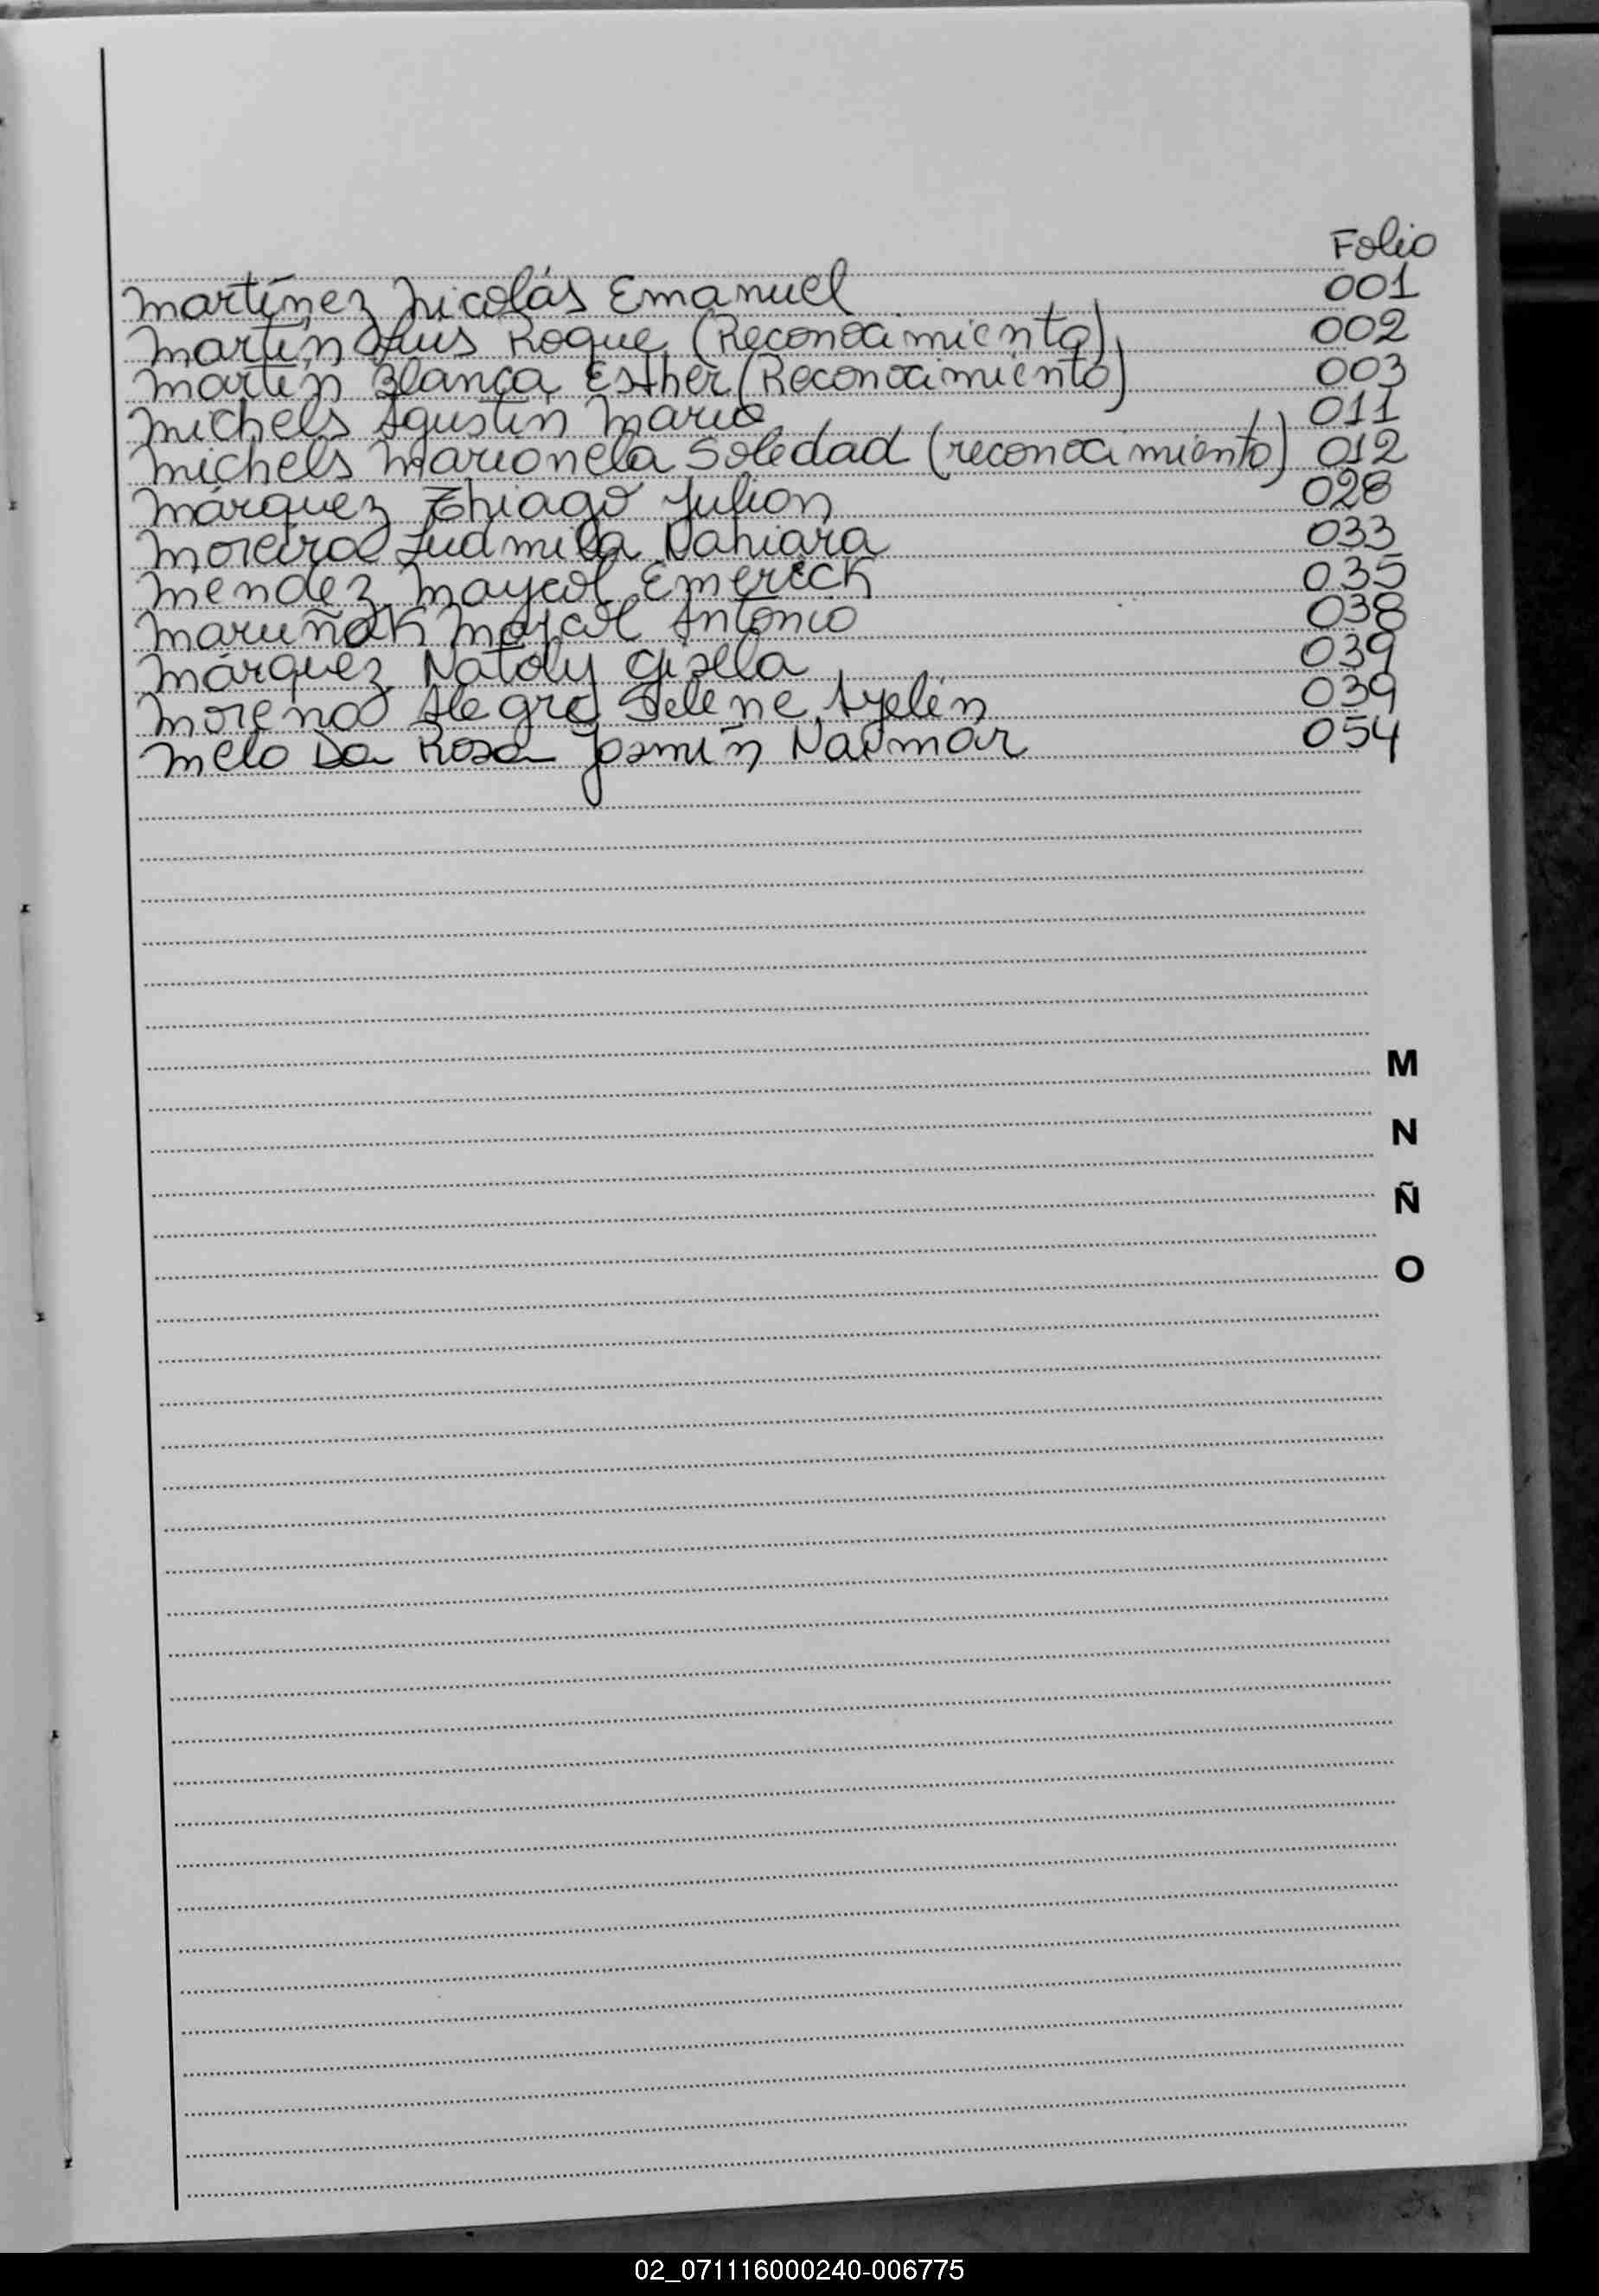 Folio
Martínez Nicolás Emanuel 001
Martín Luis Roque (Reconocimiento) 002
Martín Blanca Esther (Reconocimiento) 003
Michels Agustín Mario 011
Michels Marionela Soledad (reconocimiento) 012
Márquez Thiago Julian 028
Moreira Ludmila Nahiara 033
Mendez Maycol Emerick 035
Maruñak Maicol Antonio 038
Márquez Nataly Gisela 039
Moreno Alegre Selene Ayelén 039
Melo Da Rosa Jasmín Naimar 054
M
N
Ñ
O
02_071116000240-006775